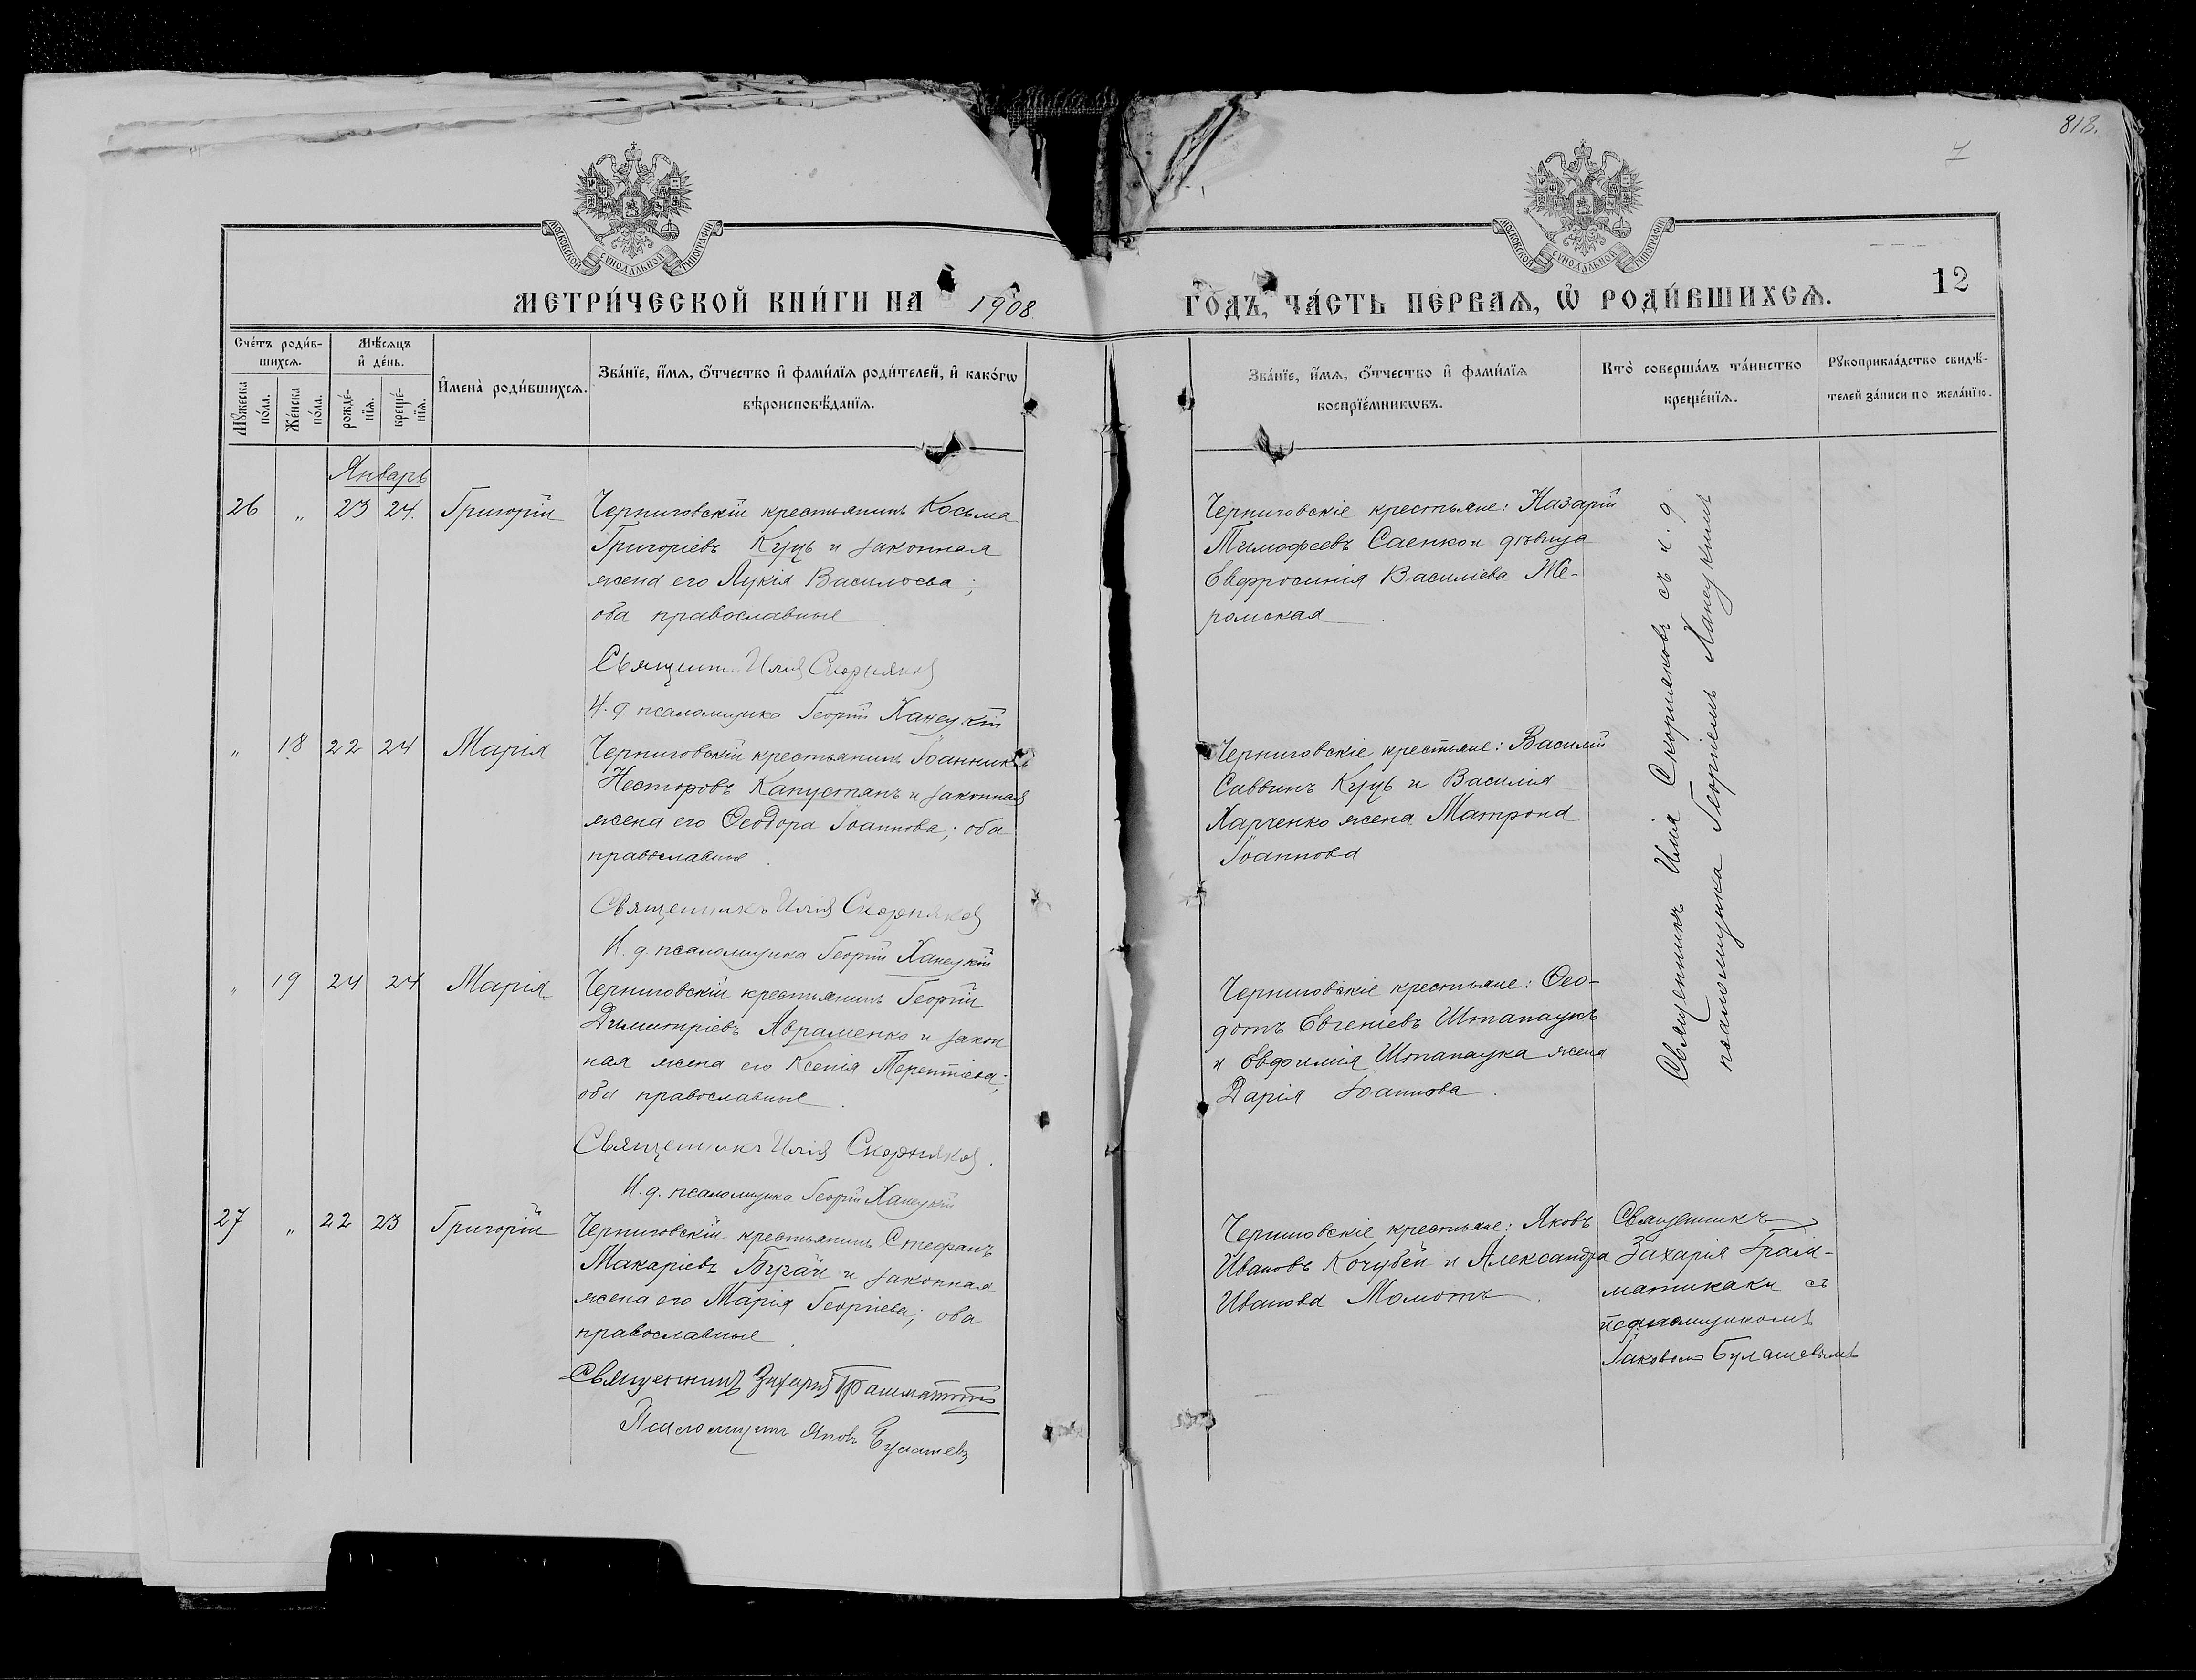 818.
МОСКОВСКОЙ СѴНОДАЛЬНОЙ ТИПОГРАФІИ
МОСКОВСКОЙ СѴНОДАЛЬНОЙ ТИПОГРАФІИ
12
МЕТРИ́ЧЕСКОЙ КНИ́ГИ НА 1908 ГО́ДЪ, ЧА́СТЬ ПЕ́РВАѦ, Ѡ҆ РОДИ́ВШИХСѦ.
Сче́тъ роди́в-
шихсѧ.
Мꙋ́жеска по́ла.
Же́нска по́ла.
Мѣ́сѧцъ
и҆ де́нь.
рожде́-нїѧ.
креще́-нїѧ.
И҆мена̀ роди́вшихсѧ.
Зва́нїе, и҆́мѧ, ѻ҆́тчество и҆ фами́лїѧ роди́телей, и҆ како́гѡ
вѣроисповѣ́данїѧ.
Зва́нїе, и҆́мѧ, ѻ҆́тчество и҆ фами́лїѧ
воспрїе́мникѡвъ.
Кто̀ соверша́лъ та́инство
креще́нїѧ.
Рꙋкоприкла́дство свидѣ́-
телей за́писи по жела́нїю.
Январь
26 „ 23 24. Григорій
Черниговскій крестьянинъ Косьма
Григоріевъ Куць и законная
жена его Лукія Васильева;
оба православные
Священ. Илія Скорняковъ
И. д. псаломщика Георгій Ханецкій
Черниговскіе крестьяне: Назарій
Тимофеевъ Саенко и дѣвица
Евфросинія Василіева Же-
ромская.
Священникъ Илія Скорняковъ съ и. д.
псаломщика Георгіемъ Ханецкимъ
„ 18 22 24 Марія
Черниговскій крестьянинъ Іоанникій
Несторовъ Капустянъ и законная
жена его Ѳеодора Іоаннова; оба
православные.
Священникъ Илія Скорняковъ
И. д. псаломщика Георгій Ханецкій
Черниговскіе крестьяне: Василій
Саввинъ Куць и Василія
Харченко жена Матрона
Іоаннова
„ 19 24 24 Марія
Черниговскій крестьянинъ Георгій
Димитріевъ Авраменко и закон-
ная жена его Ксенія Терентіева;
оба православные.
Священникъ Илія Скорняковъ.
И. д. псаломщика Георгій Ханецкій
Черниговскіе крестьяне: Ѳео-
дотъ Евгеніевъ Штапаукъ
и Евфимія Штапаука жена
Дарія Іоаннова.
27 „ 22 23 Григорій
Черниговскій крестьянинъ Стефанъ
Макаріевъ Бугай и законная
жена его Марія Георгіева; оба
православные.
Священникъ Захарія Грамматикаки
Псаломщикъ Яковъ Булашевъ
Черниговскіе крестьяне: Яковъ
Ивановъ Кочубей и Александра
Иванова Момотъ.
Священникъ
Захарія Грам-
матикаки съ
псаломщикомъ
Іаковомъ Булашевымъ